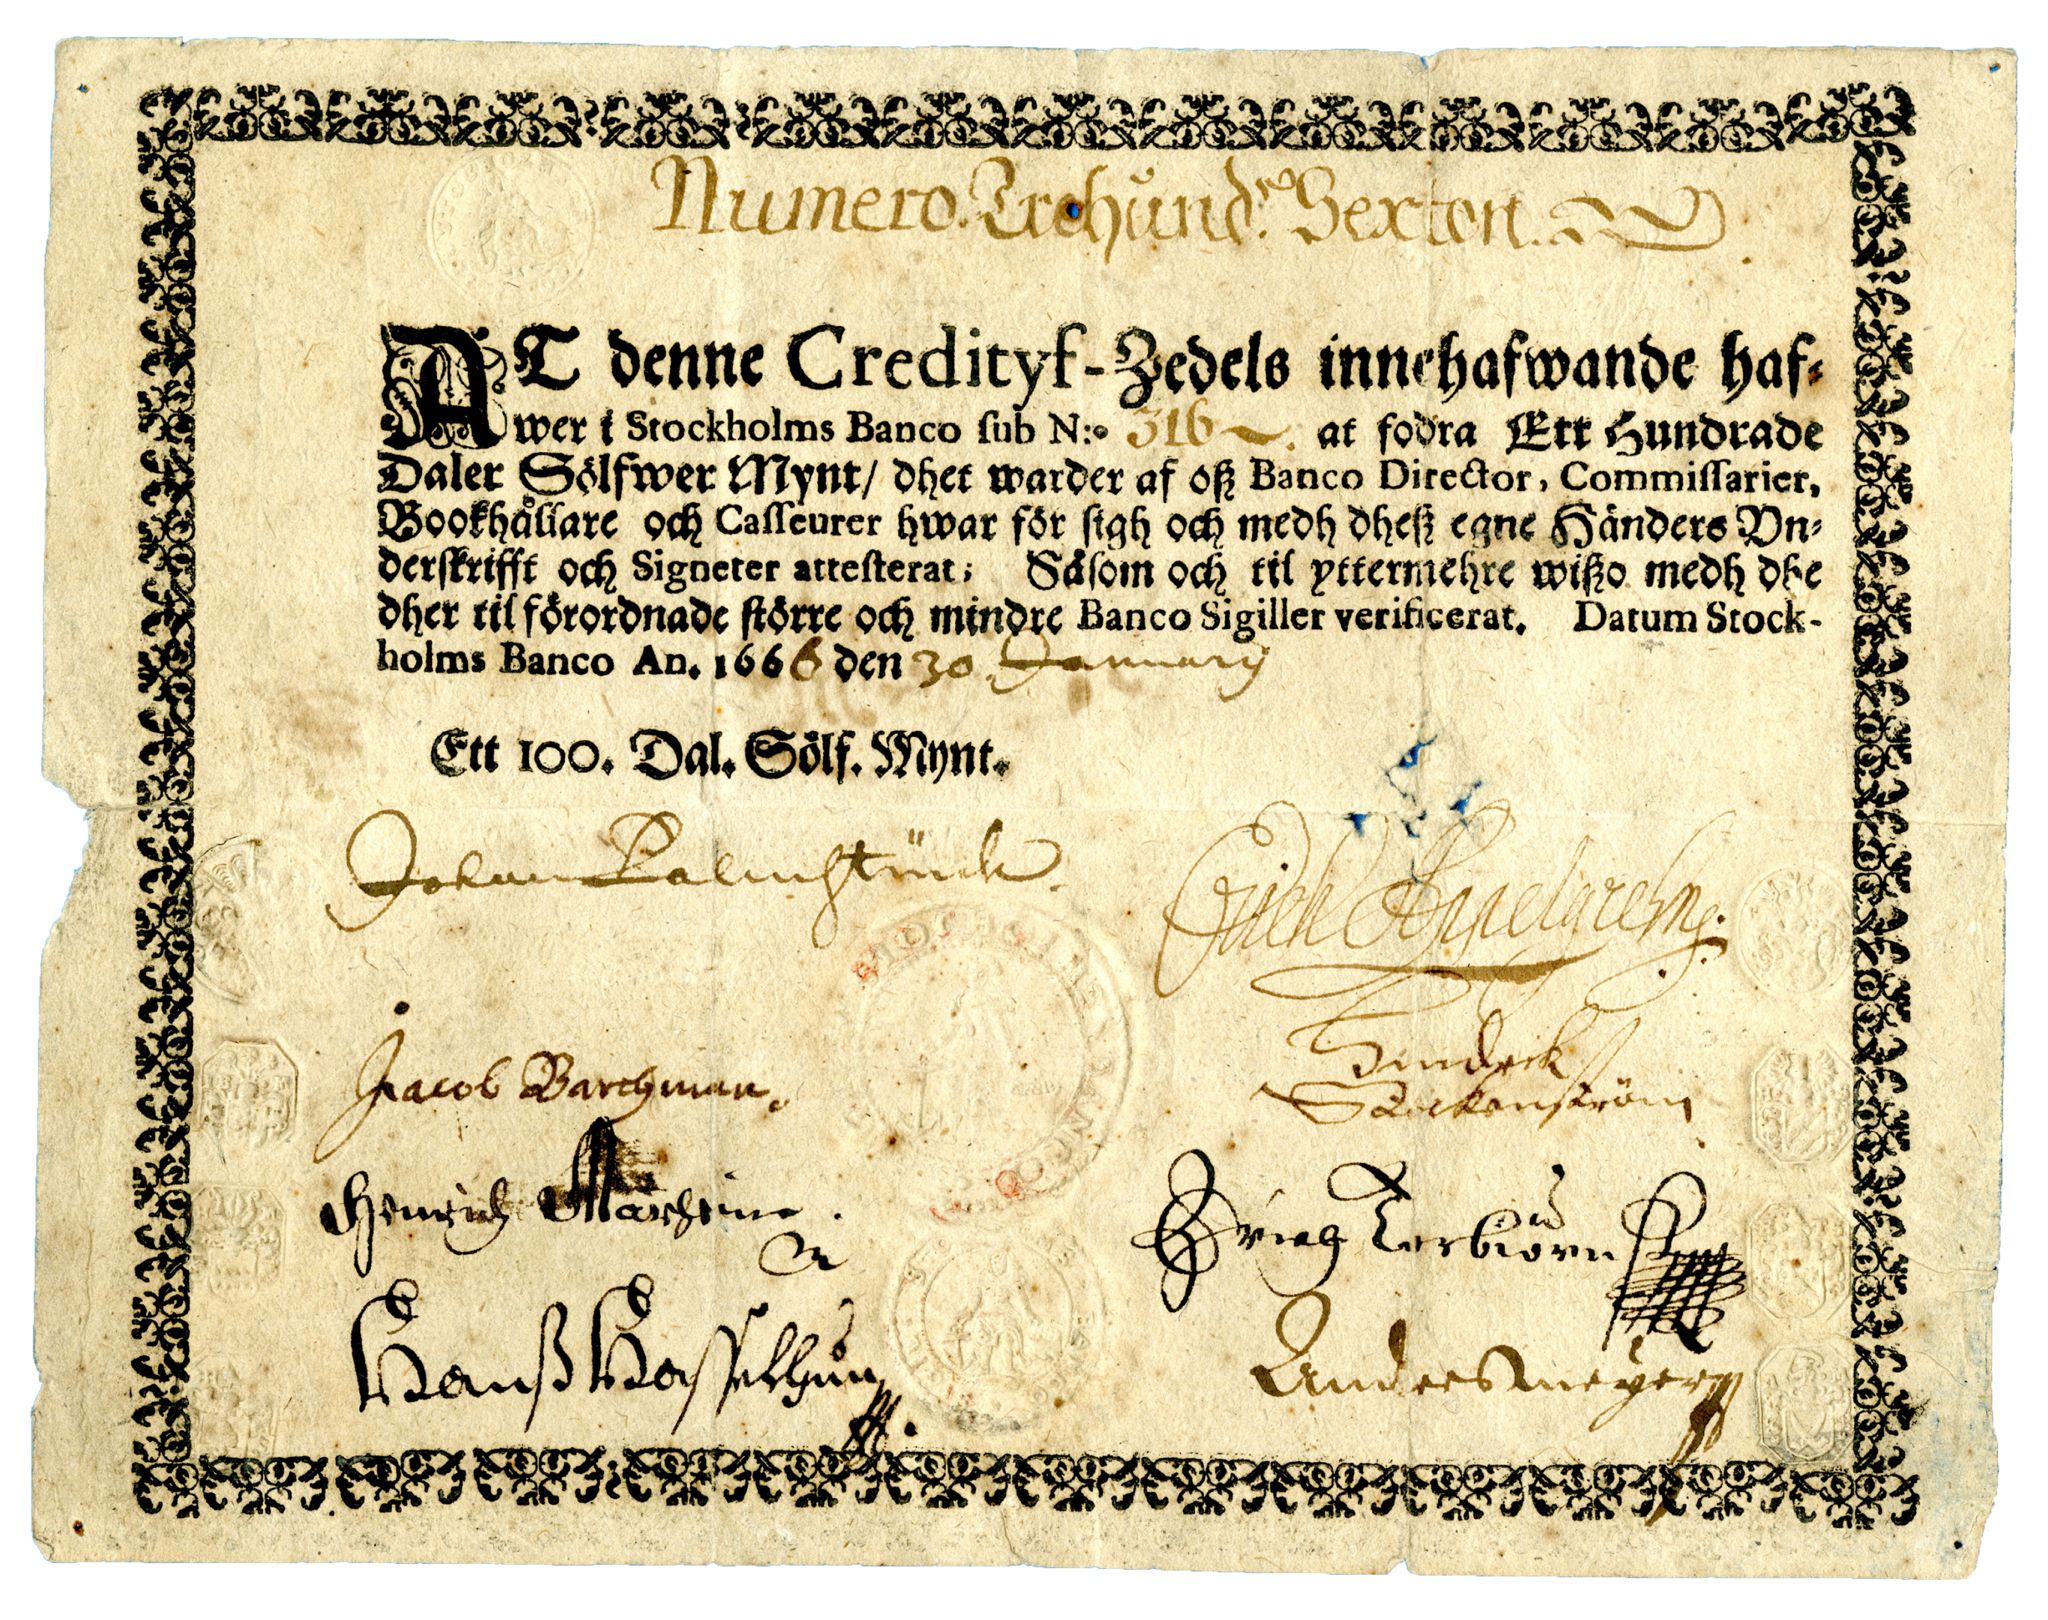 Numero. Trehund.e Sexton.
AT denne Credityf-Zedels innehafwande haf-
wer i Stockholms Banco ſub N:o 316 at fodra Ett Hundrade
Daler Sölfwer Mynt/ dhet warder af oß Banco Director, Commiſſarier,
Bookhållare och Caſſeurer hwar för ſigh och medh dheß egne Händers Vn-
derſkrifft och Signeter atteſterat; Såſom och til yttermehre wißo medh dhe
dher til förordnade ſtörre och mindre Banco Sigiller verificerat. Datum Stock-
holms Banco An. 1666 den 30. January
Ett 100. Dal. Sölf. Mynt.
Johan Palmstrück.
Jacob Barchman.
Hindrik
Stockenström
Henrich
Hanß Hasselhun
Anders Meyer